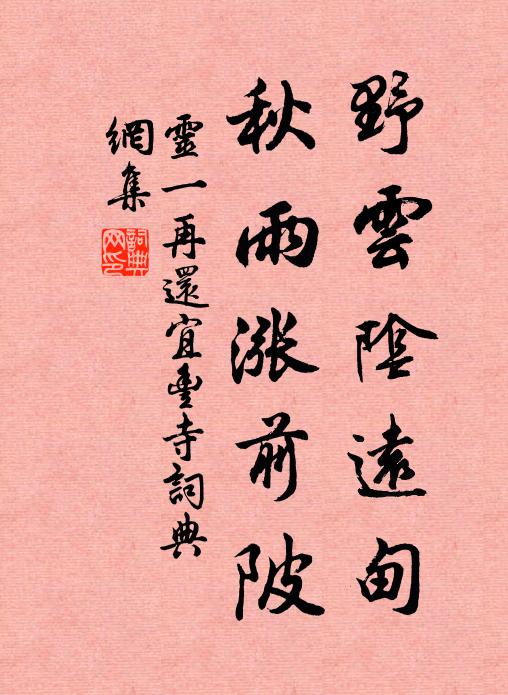 野雲陰遠甸
秋雨漲前陂
靈一再還宜豐寺詞典
網集
詞典
网印